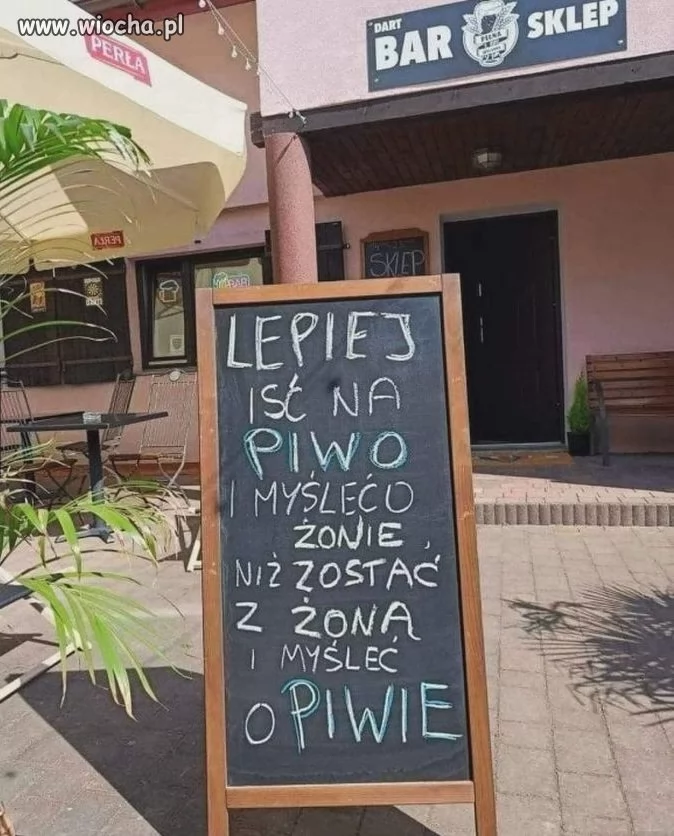 www.wiocha.pl
PERŁA
DART
BAR
SKLEP
PEŁNA
PERŁA
SKLEP
BAR
LEPIEJ
IŚĆ NA
PIWO
I MYŚLEĆ O
ŻONIE,
NIŻ ZOSTAĆ
Z ŻONĄ
I MYŚLEĆ
O PIWIE